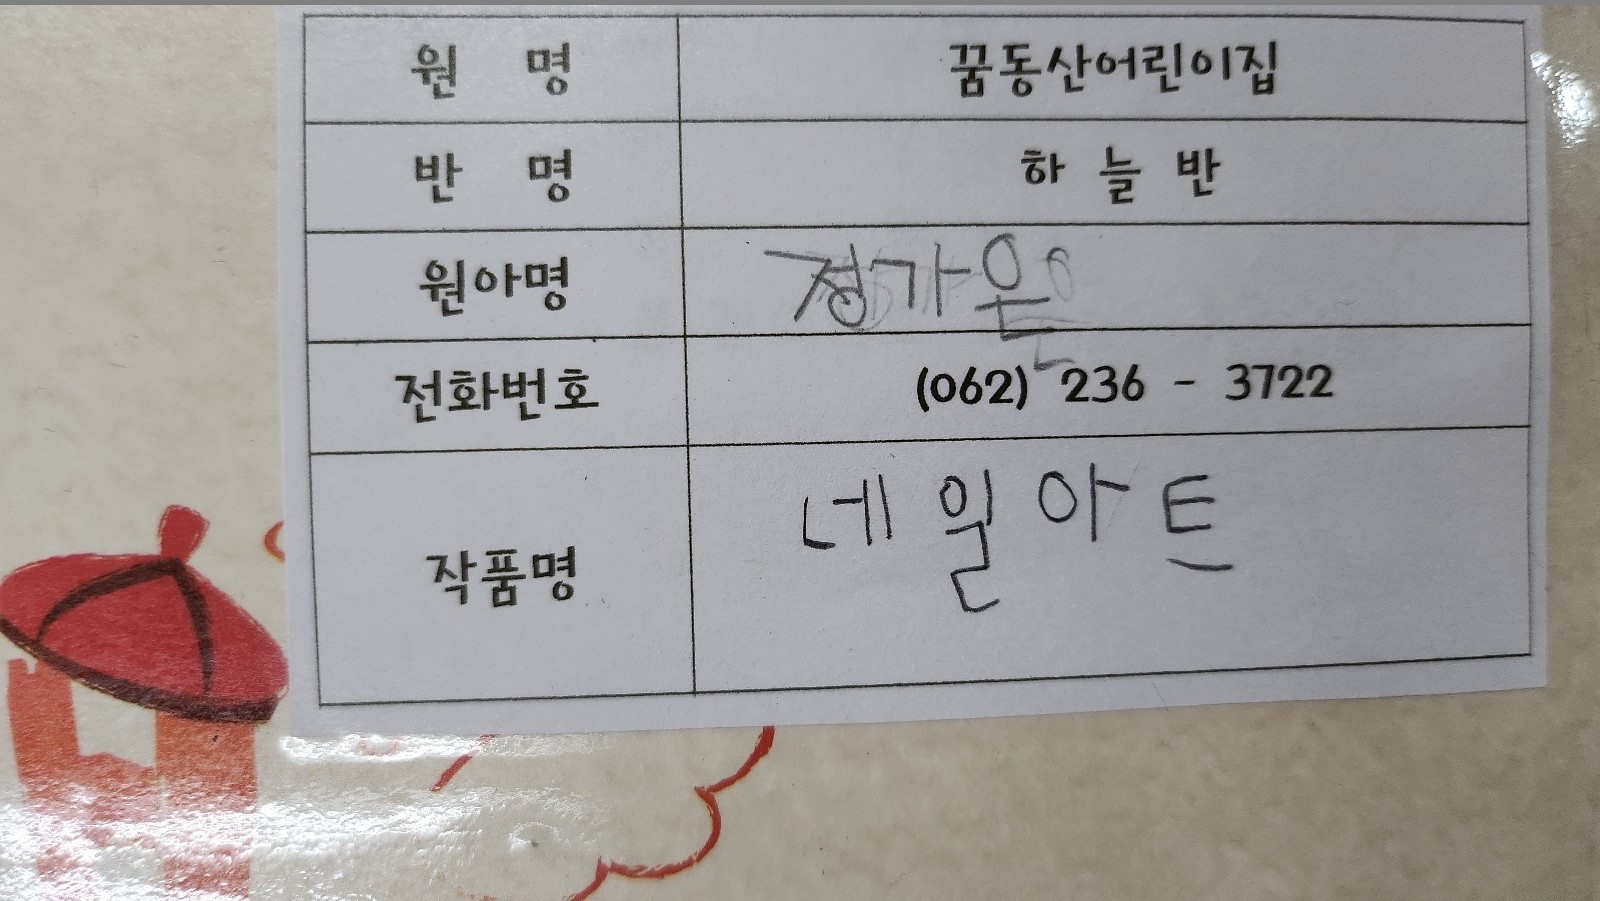 원 명 꿈동산어린이집
반 명 하 늘 반
원아명 정가은
전화번호 (062) 236 - 3722
작품명 네일아트